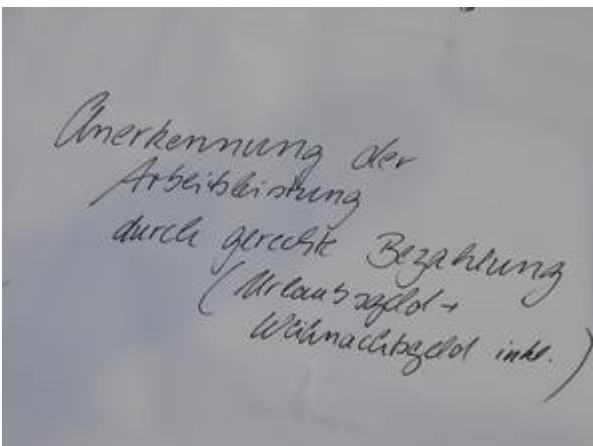 Anerkennung der
Arbeitsleistung
durch gerechte Bezahlung
(Urlaubsgeld +
Weihnachtsgeld inkl.)